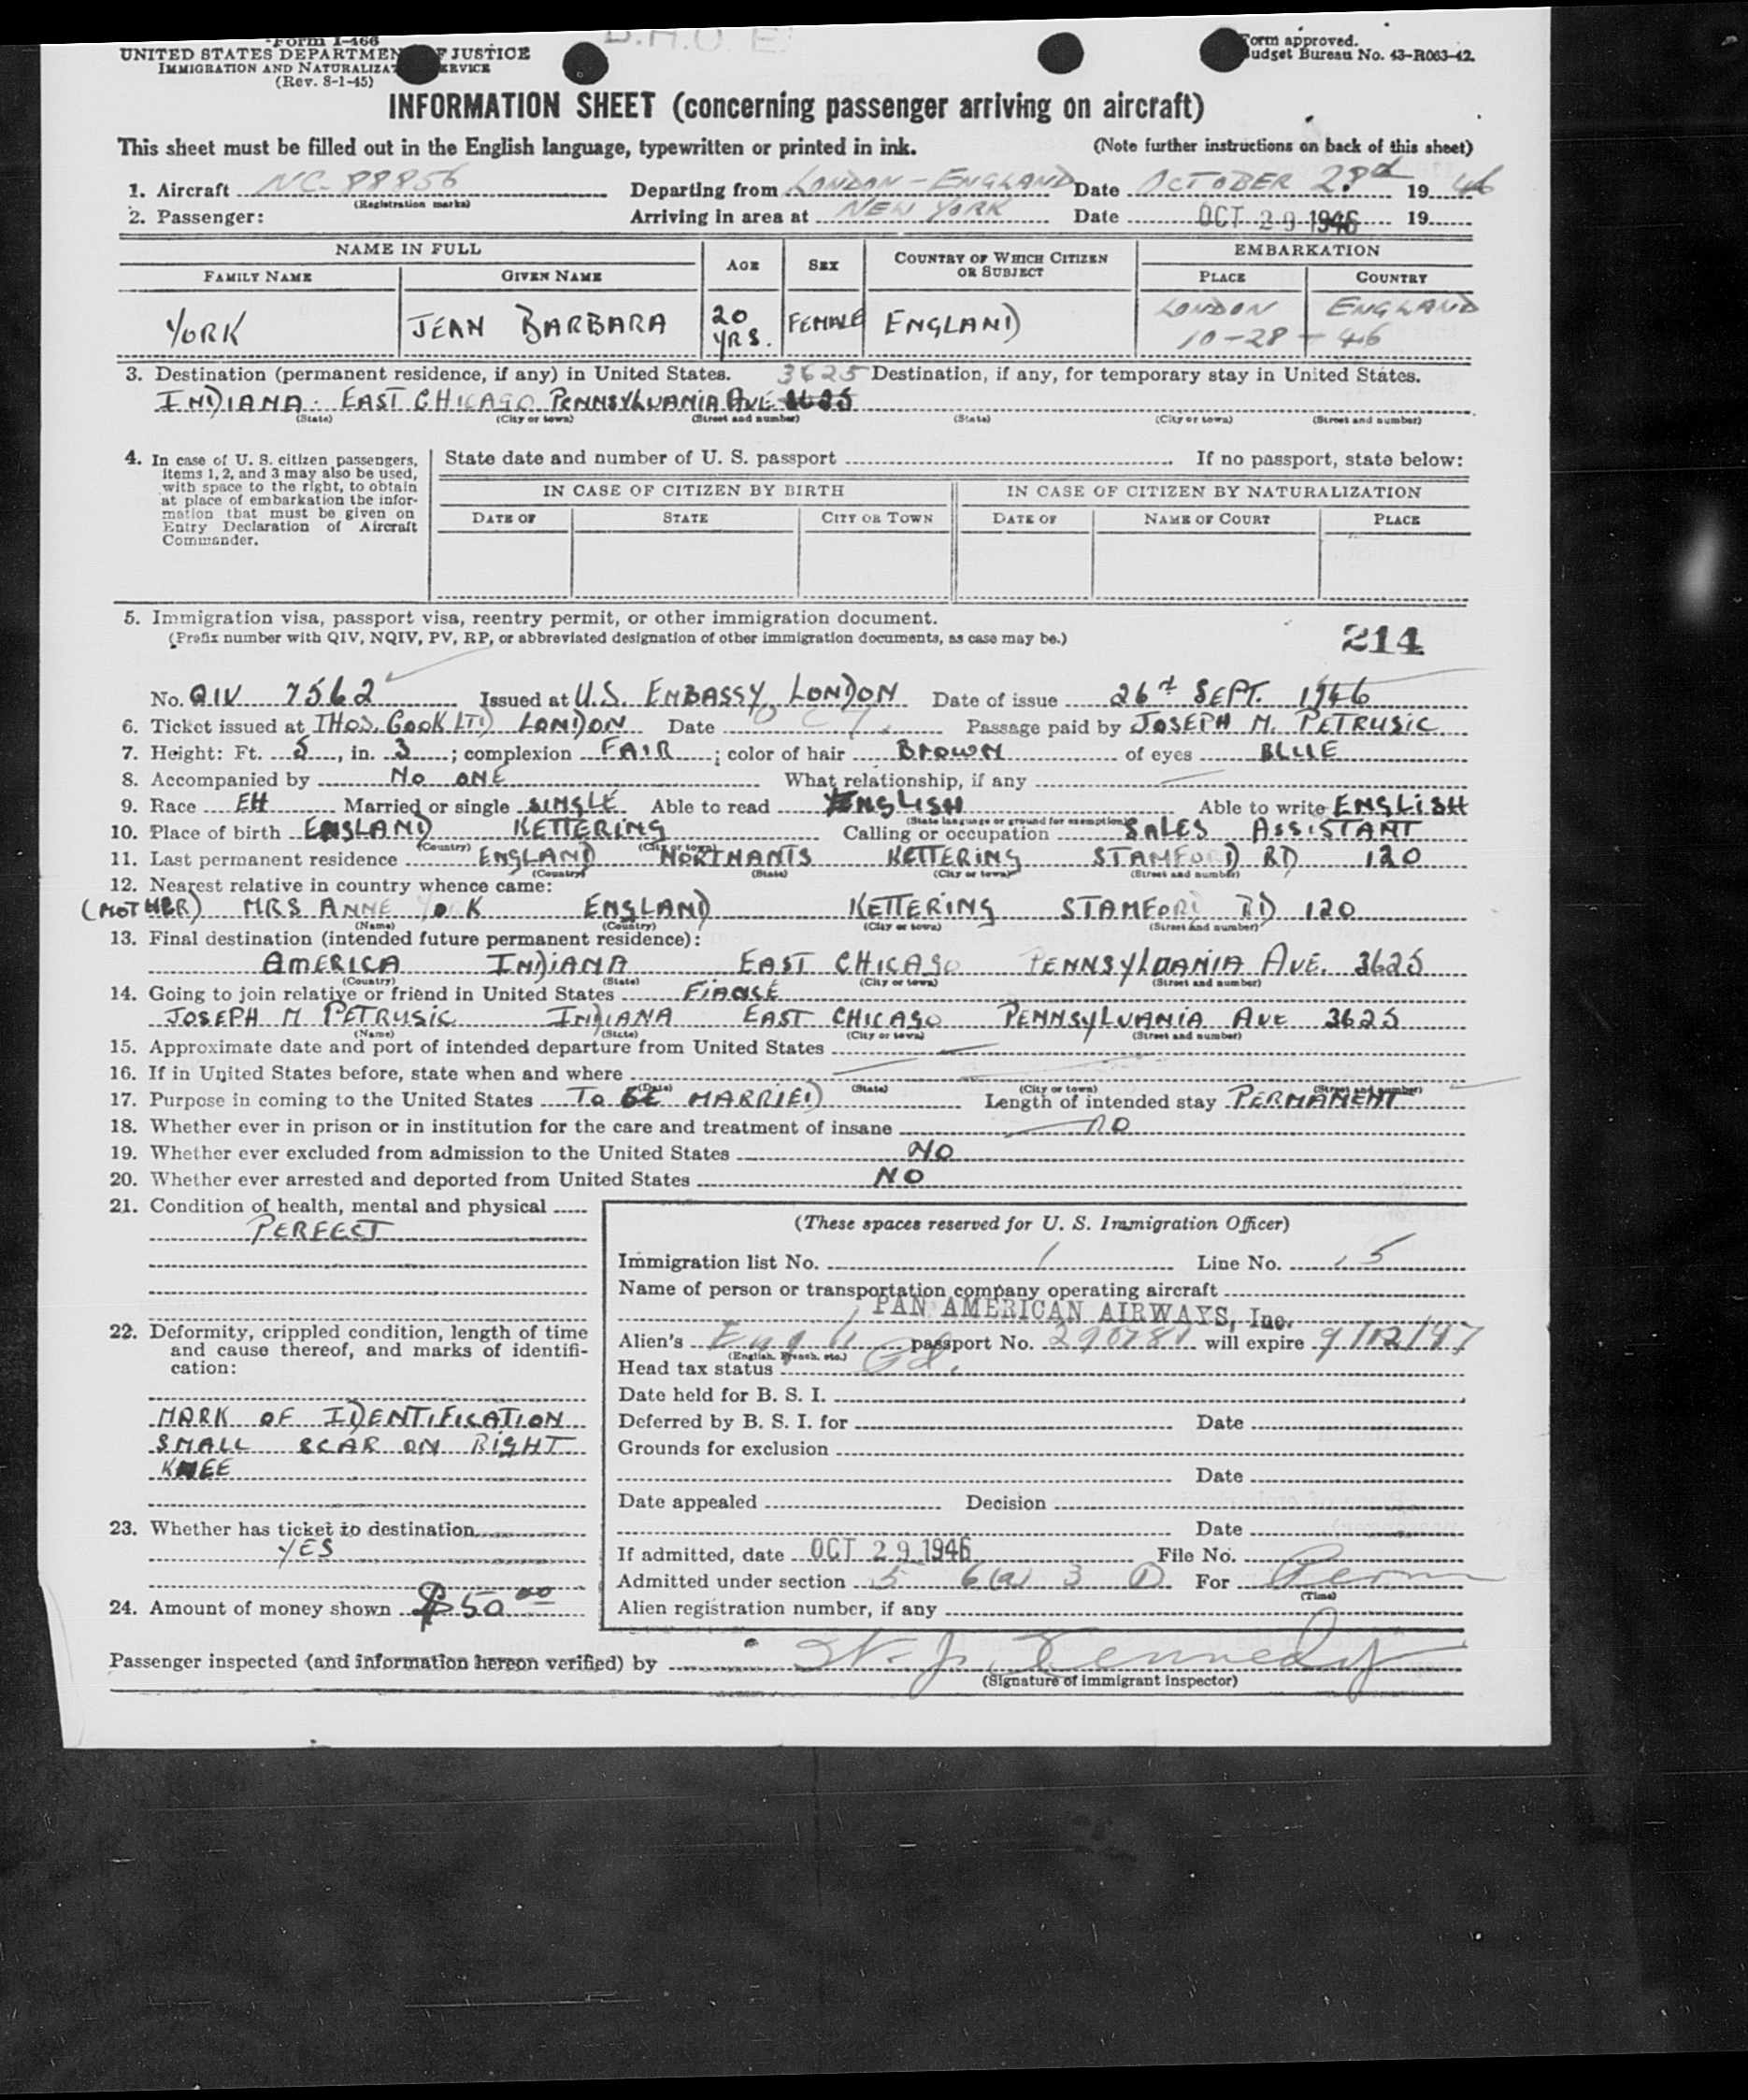 Form I-466
UNITED STATES DEPARTMENT OF JUSTICE
IMMIGRATION AND NATURALIZATION SERVICE
(Rev. 8-1-45)
Form approved.
Budget Bureau No. 43-R063-42.
INFORMATION SHEET (concerning passenger arriving on aircraft)
This sheet must be filled out in the English language, typewritten or printed in ink. (Note further instructions on back of this sheet)
1. Aircraft NC-88856 Departing from LONDON-ENGLAND Date OCTOBER 28d 1946
(Registration marks)
2. Passenger: Arriving in area at NEW YORK Date OCT 29 1946 19
NAME IN FULL AGE SEX COUNTRY OF WHICH CITIZEN OR SUBJECT EMBARKATION
FAMILY NAME GIVEN NAME PLACE COUNTRY
YORK JEAN BARBARA 20 YRS. FEMALE ENGLAND LONDON ENGLAND
10-28-46
3. Destination (permanent residence, if any) in United States. 3625 Destination, if any, for temporary stay in United States.
INDIANA. EAST CHICAGO PENNSYLVANIA AVE
(State) (City or town) (Street and number) (State) (City or town) (Street and number)
4. In case of U. S. citizen passengers, items 1, 2, and 3 may also be used, with space to the right, to obtain at place of embarkation the information that must be given on Entry Declaration of Aircraft Commander.
State date and number of U. S. passport If no passport, state below:
IN CASE OF CITIZEN BY BIRTH IN CASE OF CITIZEN BY NATURALIZATION
DATE OF STATE CITY OR TOWN DATE OF NAME OF COURT PLACE
5. Immigration visa, passport visa, reentry permit, or other immigration document.
(Prefix number with QIV, NQIV, PV, RP, or abbreviated designation of other immigration documents, as case may be.)
214
No. QIV 7562 Issued at U.S. EMBASSY LONDON Date of issue 26th SEPT. 1946
6. Ticket issued at THOS. COOK LTD LONDON Date OCT. Passage paid by JOSEPH M. PETRUSIC
7. Height: Ft. 5, in. 3; complexion FAIR; color of hair BROWN of eyes BLUE
8. Accompanied by NO ONE What relationship, if any
9. Race EH Married or single SINGLE Able to read ENGLISH Able to write ENGLISH
(State language or ground for exemption)
10. Place of birth ENGLAND KETTERING Calling or occupation SALES ASSISTANT
(Country) (City or town)
11. Last permanent residence ENGLAND NORTHANTS KETTERING STAMFORD RD 120
(Country) (State) (City or town) (Street and number)
12. Nearest relative in country whence came:
(MOTHER) MRS ANNE YORK ENGLAND KETTERING STAMFORD RD 120
(Name) (Country) (City or town) (Street and number)
13. Final destination (intended future permanent residence):
AMERICA INDIANA EAST CHICAGO PENNSYLVANIA AVE. 3625
(Country) (State) (City or town) (Street and number)
14. Going to join relative or friend in United States FIANSÉ
JOSEPH M PETRUSIC INDIANA EAST CHICAGO PENNSYLVANIA AVE 3625
(Name) (State) (City or town) (Street and number)
15. Approximate date and port of intended departure from United States
16. If in United States before, state when and where
(Date) (State) (City or town) (Street and number)
17. Purpose in coming to the United States TO BE MARRIED Length of intended stay PERMANENT
18. Whether ever in prison or in institution for the care and treatment of insane NO
19. Whether ever excluded from admission to the United States NO
20. Whether ever arrested and deported from United States NO
21. Condition of health, mental and physical
PERFECT
22. Deformity, crippled condition, length of time and cause thereof, and marks of identification:
MARK OF IDENTIFICATION
SMALL SCAR ON RIGHT
KNEE
23. Whether has ticket to destination
YES
24. Amount of money shown $50.00
(These spaces reserved for U. S. Immigration Officer)
Immigration list No. 1 Line No. 5
Name of person or transportation company operating aircraft
PAN AMERICAN AIRWAYS, Inc.
Alien's Engl passport No. 290781 will expire 9/12/47
(English, French, etc.)
Head tax status Pd.
Date held for B. S. I.
Deferred by B. S. I. for Date
Grounds for exclusion
Date
Date appealed Decision
Date
If admitted, date OCT 29 1946 File No.
Admitted under section 5 6(a) 3 (1) For Perm
(Time)
Alien registration number, if any
Passenger inspected (and information hereon verified) by W. J. Kennedy
(Signature of immigrant inspector)